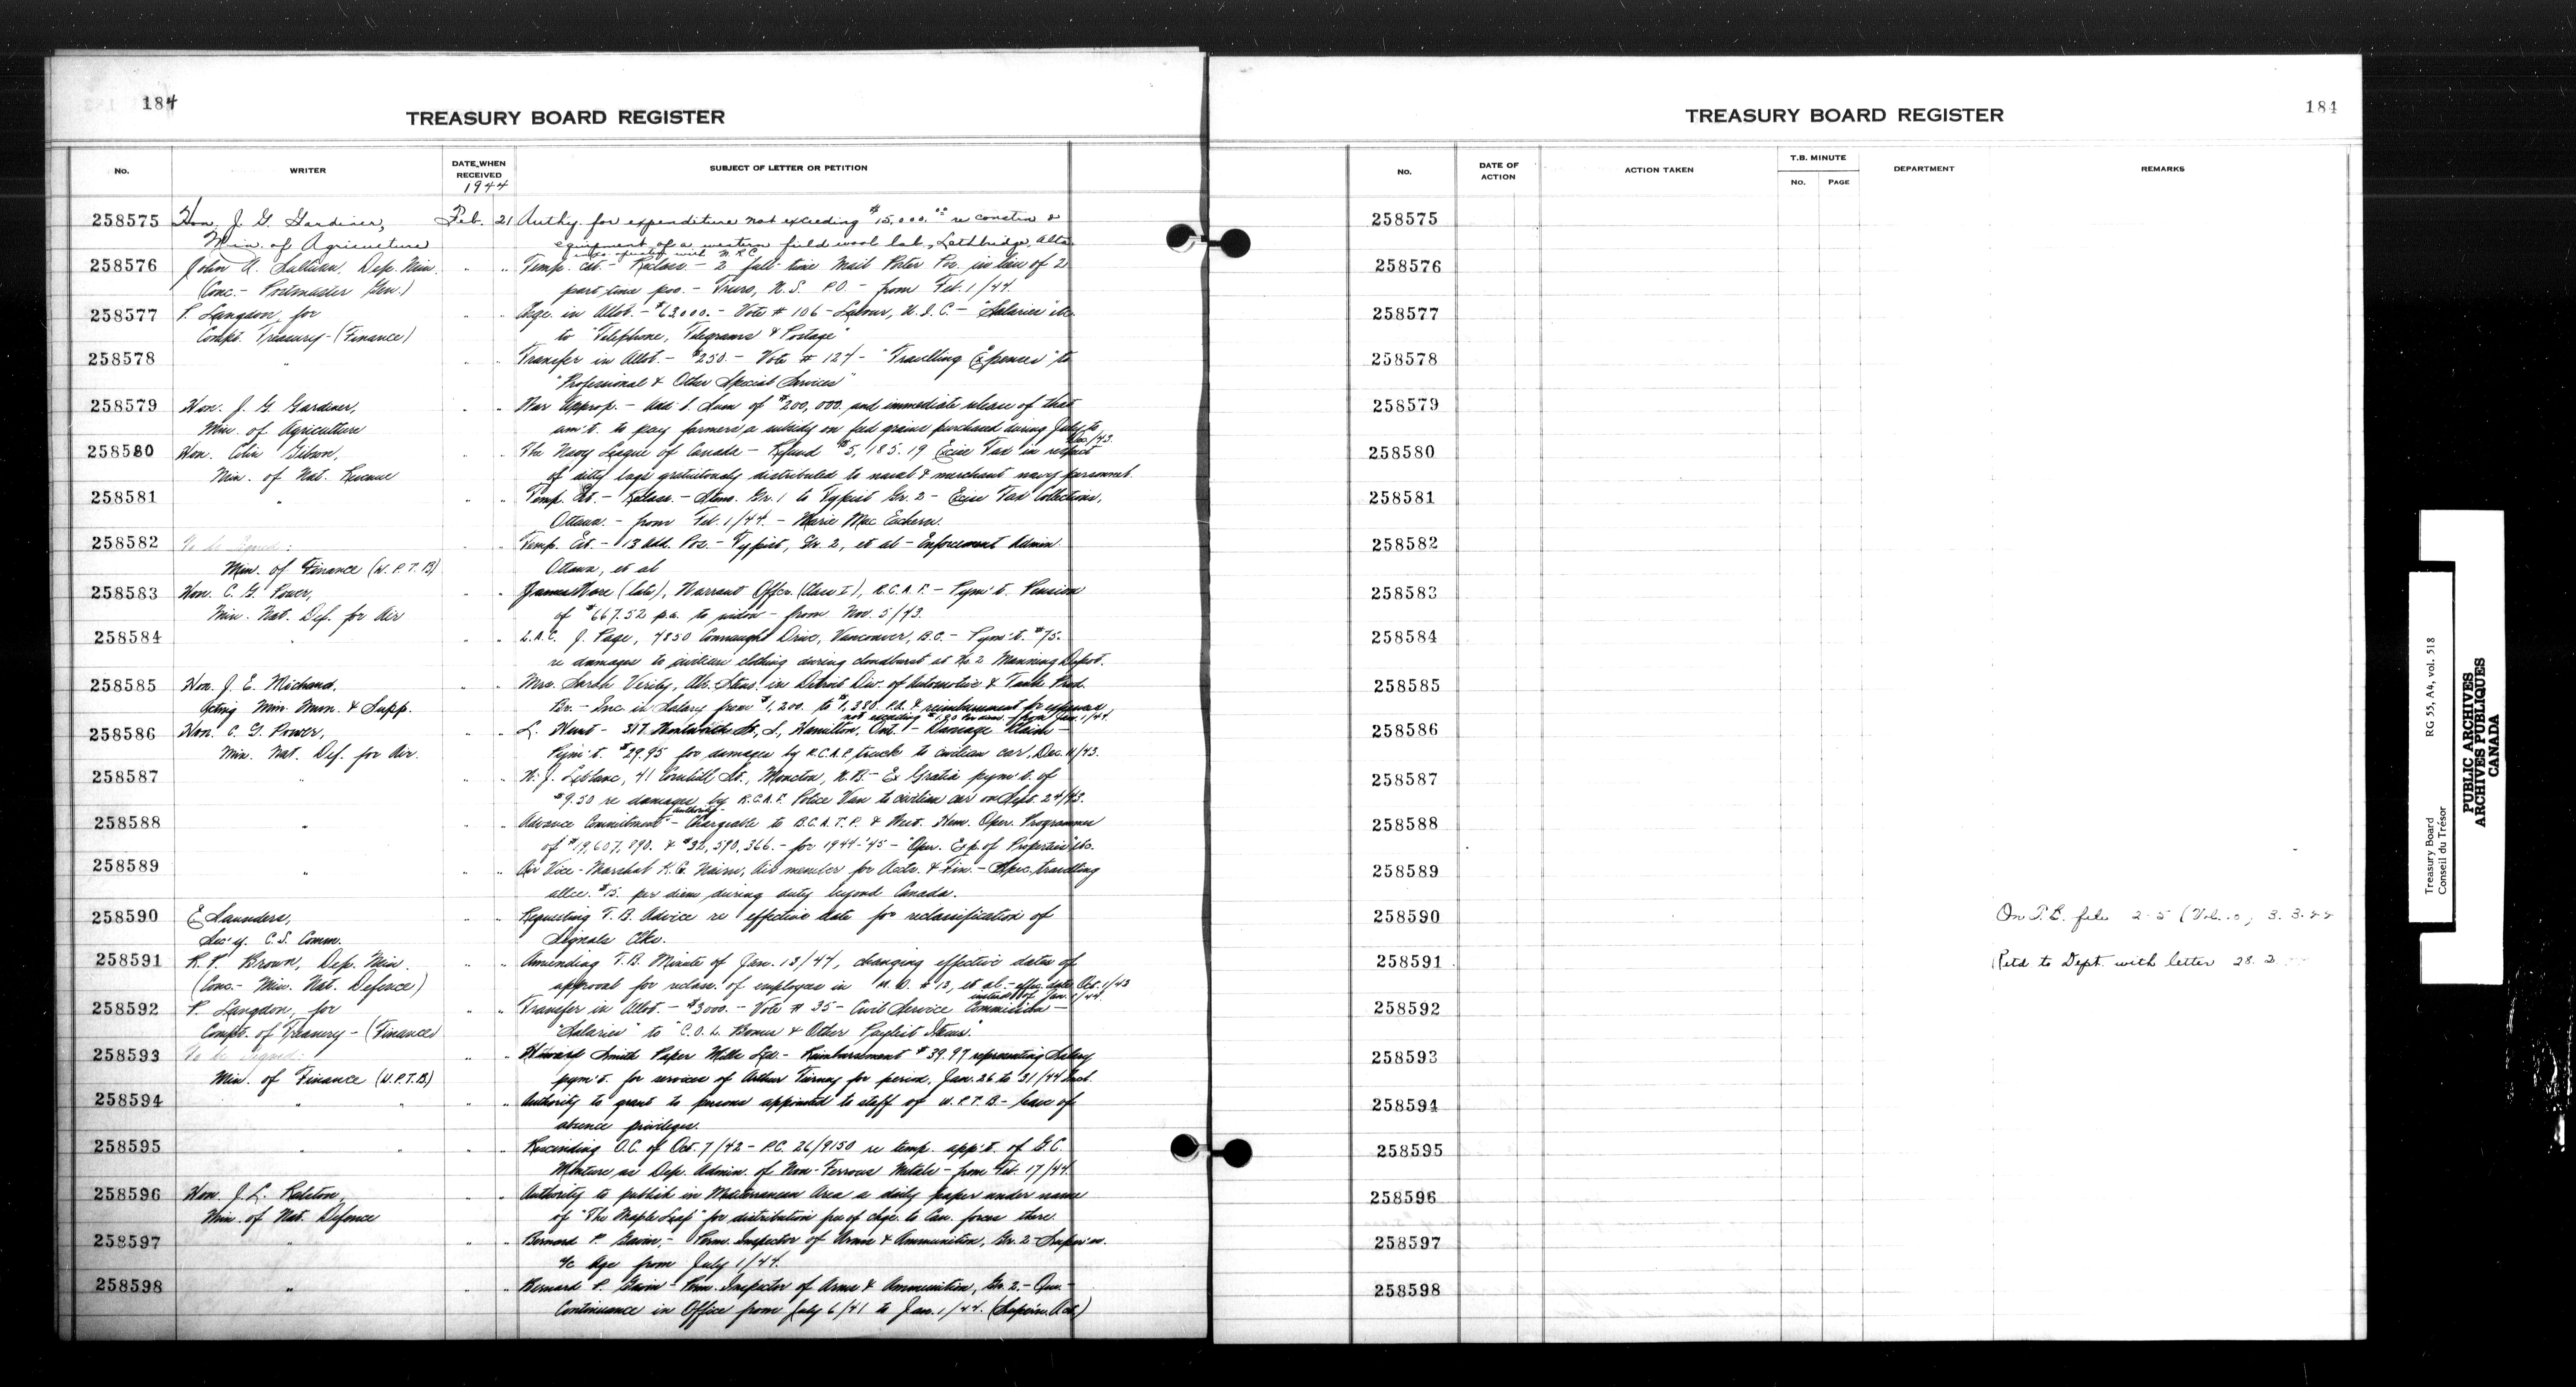 184
TREASURY BOARD REGISTER
No.
WRITER
DATE WHEN RECEIVED
1944
SUBJECT OF LETTER OR PETITION
258575 Hon. J. G. Gardiner, Feb. 21 Authy. for expenditure not exceeding $15,000.00 re constrn &
Min. of Agriculture equipment of a western field wool lab., Lethbridge, Alta.
with N.R.C.
258576 John A. Sullivan, Dep. Min. " " Temp. Est. - Reclass. - 2 full-time Mail Porter Pos. in lieu of 2
(Conc. - Postmaster Gen.) part time pos. - Truro, N.S. P.O. - from Feb. 1/44.
258577 P. Langdon, for " " Chge. in Allot. - $63000. - Vote # 106 - Labour, U.I.C. - "Salaries" etc.
Compt. Treasury - (Finance) to "Telephone, Telegrams & Postage"
258578 " " " Transfer in Allot. - $250. - Vote # 124 - "Travelling Expenses" to
"Professional & Other Special Services"
258579 Hon. J. G. Gardiner, " " War Approp. - Add'l. Sum of $200,000. and immediate release of that
Min. of Agriculture am't. to pay farmers a subsidy on feed grains purchased during July to
Dec./43.
258580 Hon. Colin Gibson, " " The Navy League of Canada - Refund $5,185.19 Excise Tax in respect
Min. of Nat. Revenue of ditty bags gratuitously distributed to naval & merchant navy personnel.
258581 " " " Temp. Est. - Reclass. - Steno. Gr. 1 to Typist Gr. 2 - Excise Tax Collections,
Ottawa. - from Feb. 1/44. - Marie Mac Eachern.
258582 To be signed: " " Temp. Est. - 13 Add. Pos. - Typist, Gr. 2, et al - Enforcement Admin.
Min. of Finance (W.P.T.B) Ottawa, et al
258583 Hon. C. G. Power, " " James (late), Warrant Offcr. (Class I), R.C.A.F. - Pym't. Pension
Min. Nat. Def. for Air of $667.52 p.a. to widow - from Nov. 5/43.
258584 " " " L.A.C. J. Page, 4850 Connaught Drive, Vancouver, B.C. - Pym't. $75.
re damages to civilian clothing during cloudburst at No. 2 Manning Depot.
258585 Hon. J. E. Michaud, " " Mrs. Sarah Verity, Ab. Steno. in Detroit Div. of Automotive & Tank Prod.
Acting Min. Mun. & Supp. Br. - Inc. in Salary from $1,200. to $1,380. P.A. & reimbursement for expenses
not exceeding from Jan. 1/44.
258586 Hon. C. G. Power, " " L. Hunt - 317 Wentworth St., S., Hamilton, Ont. - Damage Claim -
Min. Nat. Def. for Air. Pym't. $29.95 for damages by R.C.A.F. truck to civilian car, Dec. 11/43.
258587 " " " N. J. Leblanc, 41 Cornhill St., Moncton, N.B. - Ex Gratia pym't. of
$9.50 re damages by R.C.A.F. Police Van to civilian car on Sept. 24/43.
258588 " " " Advance Commitment authority - Chargeable to B.C.A.T.P. & West. Hem. Oper. Programmes
of $19,607,890. & $32,590,366. - for 1944-'45 - "Oper. Exp. of Properties" etc.
258589 " " " Air Vice-Marshal K. G. Nairn, Air member for Accts. & Fin. - Spec. travelling
allce. $15. per diem during duty beyond Canada.
258590 E. Saunders, Requesting T.B. Advice re effective date for reclassification of
Sec'y. C.S. Comm. Signals Clks.
258591 R. P. Brown, Dep. Min. " " Amending T.B. Minute of Jan. 13/44, changing effective dates of
(Conc. - Min. Nat. Defence) approval for reclass. of employees in M.D. # 13, et al. - effec. date Oct. 1/43
instead of Jan. 1/44.
258592 P. Langdon, for " " Transfer in Allot. - $3000. - Vote # 35 - Civil Service Commission -
Compt. of Treasury - (Finance) "Salaries" to "C.O.L. Bonus & Other Paylist Items."
258593 To be signed: " " Howard Smith Paper Mills Ltd. - Reimbursement $39.97 representing Salary
Min. of Finance (W.P.T.B.) pym't. for services of Arthur Tierney for period, Jan. 26 to 31/44 Incl.
258594 " " " " Authority to grant to persons appointed to staff of W.P.T.B. - leave of
absence privileges.
258595 " " " " Rescinding O.C. of Oct. 7/42 - P.C. 26/9150 re temp. app't. of G.C.
Monture as Dep. Admin. of Non-Ferrous Metals - from Feb. 17/44.
258596 Hon. J. L. Ralston, " " Authority to publish in Mediterranean Area a daily paper under name
Min. of Nat. Defence of "The Maple Leaf" for distribution free of chge. to Can. forces there.
258597 " " " Bernard P. Gavin, - Perm. Inspector of Arms & Ammunition, Gr. 2 - Super'n.
a/c Age from July 1/44.
258598 " " " Bernard P. Gavin - Perm. Inspector of Arms & Ammunition, Gr. 2 -
Continuance in Office from July 6/41 to Jan. 1/44. (Super'n. Act)
TREASURY BOARD REGISTER
184
No.
DATE OF ACTION
ACTION TAKEN
T.B. MINUTE
No.
PAGE
DEPARTMENT
REMARKS
258575
258576
258577
258578
258579
258580
258581
258582
258583
258584
258585
258586
258587
258588
258589
258590 On T.B. file 2-5 (Vol. 3. 3. 44
258591 Retd to Dept. with letter 28. 2
258592
258593
258594
258595
258596
258597
258598
Treasury Board RG 55, A4, vol. 518
Conseil du Trésor
PUBLIC ARCHIVES
ARCHIVES PUBLIQUES
CANADA